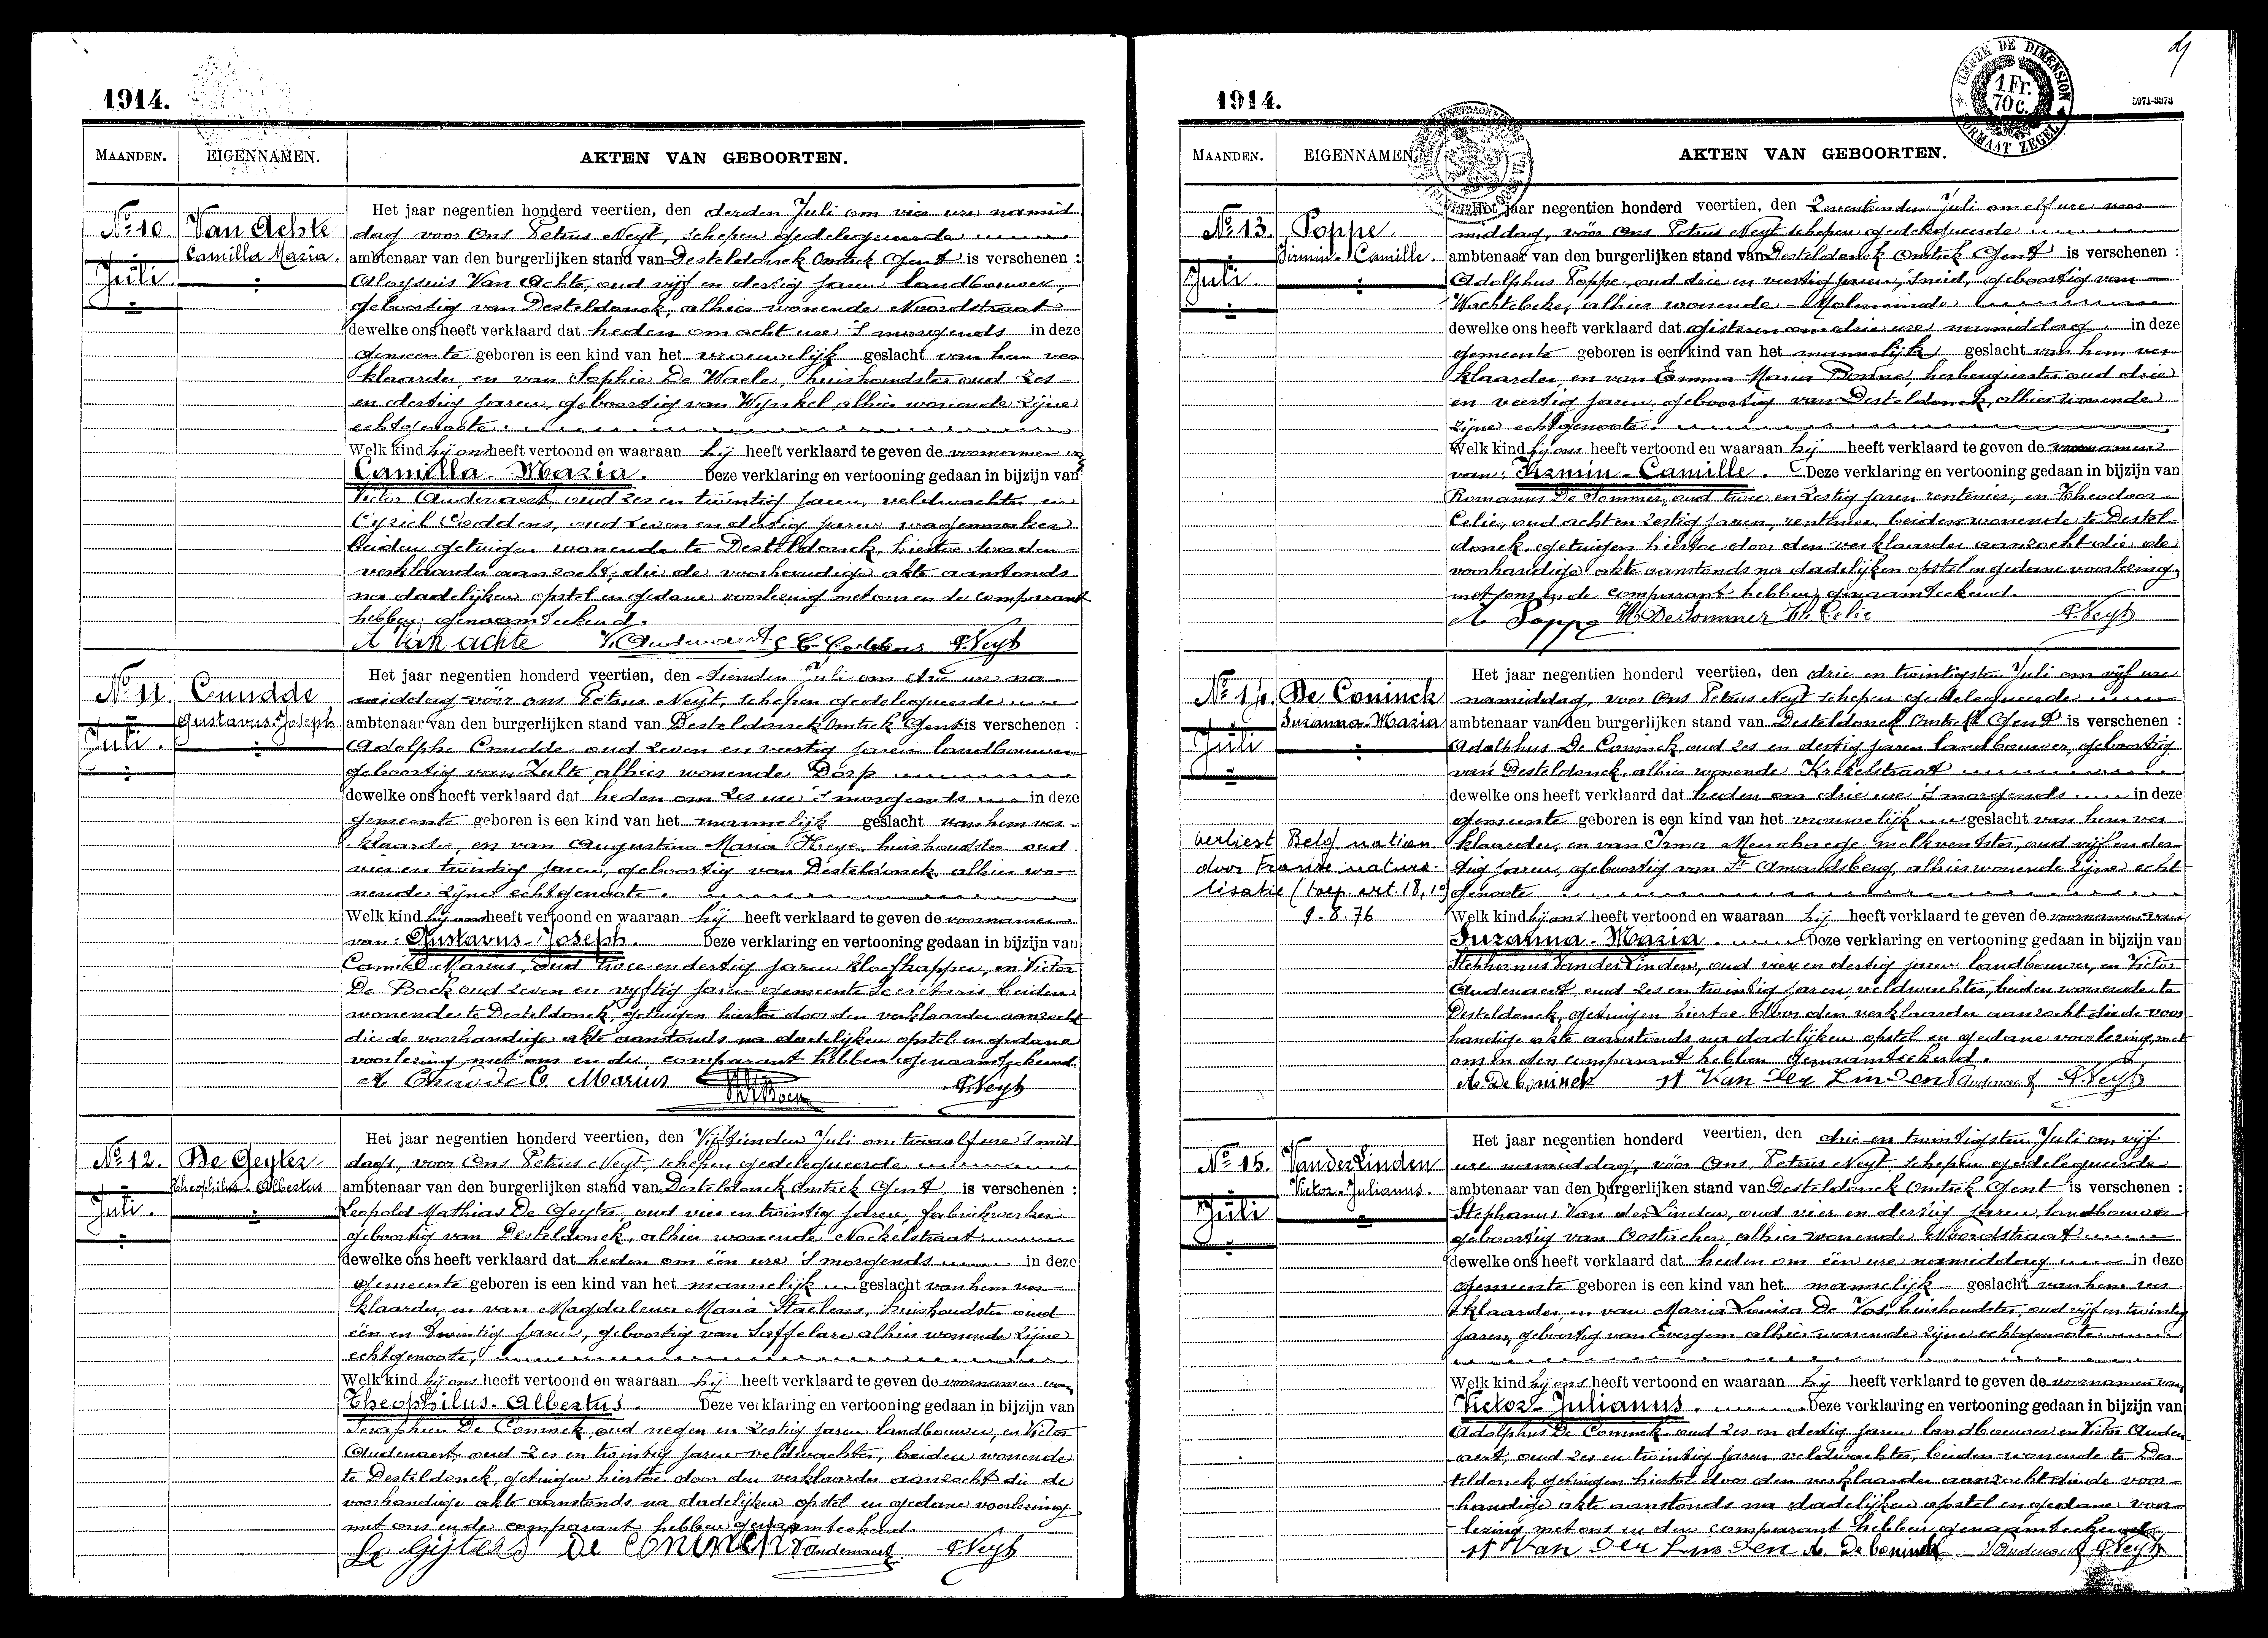 1914.
MAANDEN. EIGENNAMEN. AKTEN VAN GEBOORTEN.
No 10. Van Achte
Camilla Maria.
Juli
Het jaar negentien honderd veertien, den derden Juli om vier ure namid
dag voor Ons Petrus Neyt, schepen gedelegueerde
ambtenaar van den burgerlijken stand van Desteldonck Omtrek Gent is verschenen :
Aloysius Van Achte, oud vijf en dertig jaren landbouwer,
geboortig van Desteldonck, alhier wonende Noordstraat
dewelke ons heeft verklaard dat heden om acht ure 's morgends in deze
gemeente geboren is een kind van het vrouwelijk geslacht van hem ver
klaarder, en van Sophie De Waele, huishoudster oud zes
en dertig jaren, geboortig van Wynkel alhier wonende zijne
echtgenoote.
Welk kind hij ons heeft vertoond en waaraan hij heeft verklaard te geven de voornamen
Camilla-Maria. Deze verklaring en vertooning gedaan in bijzijn van
Victor Audenaert, oud zes en twintig jaren, veldwachter, en
Cyriel Coddens, oud zeven en dertig jaren wagenmaker
beiden getuigen wonende te Desteldonck, hiertoe door den
verklaarder aanzocht, die de voorhandige akte aanstonds
na dadelijken opstel en gedane voorlezing met ons en de comparant
hebben genaamteekend.
A Van achte V. Audenaert C. Coddens P. Neyt
No 11. Cnudde
Gustavus-Joseph.
Juli.
Het jaar negentien honderd veertien, den tienden Juli om drie ure na
middag vóór ons Petrus Neyt, schepen gedelegueerde
ambtenaar van den burgerlijken stand van Desteldonck Omtrek Gent is verschenen :
Adolphe Cnudde oud zeven en veertig jaren landbouwer
geboortig van Zulte alhier wonende Dorp
dewelke ons heeft verklaard dat heden om zes ure 's morgends in deze
gemeente geboren is een kind van het mannelijk geslacht van hem ver
klaarder, en van Augustina Maria Heye, huishoudster oud
vier en twintig jaren, geboortig van Desteldonck alhier wo
nende zijne echtgenoote.
Welk kind hij ons heeft vertoond en waaraan hij heeft verklaard te geven de voornamen
van: Gustavus-Joseph. Deze verklaring en vertooning gedaan in bijzijn van
Camiel Marius, oud twee en dertig jaren kloefkapper, en Victor
De Bock oud zeven en vijftig jaren gemeente secretaris beiden
wonende te Desteldonck, getuigen hiertoe door den verklaarder aanzocht
die de voorhandige akte aanstonds na dadelijken opstel en gedane
voorlezing met ons en de comparant hebben genaamteekend
A Cnudde C. Marius P. Neyt
No 12. De Geyter
Theophilus-Albertus
Juli.
Het jaar negentien honderd veertien, den Vijftienden Juli om twaalf ure 's mid
dags, voor Ons Petrus Neyt, schepen gedelegueerde
ambtenaar van den burgerlijken stand van Desteldonck Omtrek Gent is verschenen :
Leopold Mathias De Geyter, oud vier en twintig jaren, fabriekwerker
geboortig van Desteldonck, alhier wonende
dewelke ons heeft verklaard dat heden om één ure 's morgends in deze
gemeente geboren is een kind van het mannelijk geslacht van hem ver
klaarder, en van Magdalena Maria Staelens, huishoudster oud
één en twintig jaren, geboortig van Saffelare alhier wonende zijne
echtgenoote,
Welk kind hij ons heeft vertoond en waaraan hij heeft verklaard te geven de voornamen van
Theophilus-Albertus. Deze verklaring en vertooning gedaan in bijzijn van
Seraphien De Coninck oud negen en zestig jaren landbouwer, en Victor
Audenaert, oud zes en twintig jaren veldwachter, beiden wonende
te Desteldonck, getuigen hiertoe door den verklaarder aanzocht die de
voorhandige akte aanstonds na dadelijken opstel en gedane voorlezing
met ons en de comparant hebben genaamteekend.
De Coninck V Audenaert P Neyt
1914.
1 Fr. 70 c.
5971-3373
MAANDEN. EIGENNAMEN. AKTEN VAN GEBOORTEN.
No 13. Poppe.
Firmin-Camille.
Juli.
Het jaar negentien honderd veertien, den Zeventienden Juli om elf ure voor
middag, vóór ons Petrus Neyt schepen gedelegueerde
ambtenaar van den burgerlijken stand van Desteldonck Omtrek Gent is verschenen :
Adolphus Poppe, oud drie en veertig jaren, smid, geboortig van
Wachtebeke, alhier wonende Moleneinde
dewelke ons heeft verklaard dat gisteren om drie ure namiddag in deze
gemeente geboren is een kind van het mannelijk geslacht van hem ver
klaarder, en van Emma Maria herbergierster oud drie
en veertig jaren, geboortig van Desteldonck, alhier wonende
zijne echtgenoote.
Welk kind hij ons heeft vertoond en waaraan hij heeft verklaard te geven de voornamen
van: Firmin-Camille. Deze verklaring en vertooning gedaan in bijzijn van
Romanus De Sommer, oud twee en zestig jaren rentenier, en Theodoor
Celie, oud acht en zestig jaren, rentenier, beiden wonende te Destel
donck, getuigen hiertoe door den verklaarder aanzocht die de
voorhandige akte aanstonds na dadelijken opstel en gedane voorlezing
met ons en de comparant hebben genaamteekend.
A Poppe R De Sommer Th. Celie P. Neyt
No 14. De Coninck
Suzanna-Maria
Juli
verliest Belg. nation
door Franse natura-
lisatie (toep. art. 18, 1°)
9.8.76
Het jaar negentien honderd veertien, den drie en twintigsten Juli om vijf ure
namiddag, voor Ons Petrus Neyt schepen gedelegueerde
ambtenaar van den burgerlijken stand van Desteldonck Omtrek Gent is verschenen :
Adolphus De Coninck, oud zes en dertig jaren landbouwer, geboortig
van Desteldonck, alhier wonende Krekelstraat
dewelke ons heeft verklaard dat heden om drie ure 's morgends in deze
gemeente geboren is een kind van het vrouwelijk geslacht van hem ver
klaarder, en van Irma Meerschaege melkventster, oud vijf en der
tig jaren, geboortig van St Amandsberg, alhier wonende zijne echt
genoote
Welk kind hij ons heeft vertoond en waaraan hij heeft verklaard te geven de voornamen van
Suzanna-Maria. Deze verklaring en vertooning gedaan in bijzijn van
Stephanus Van der Linden, oud vier en dertig jaren landbouwer, en Victor
Audenaert, oud zes en twintig jaren, veldwachter, beiden wonende te
Desteldonck, getuigen hiertoe door den verklaarder aanzocht die de voor
handige akte aanstonds na dadelijken opstel en gedane voorlezing, met
ons en den comparant hebben genaamteekend.
A. De Coninck St Van Der Linden V Audenaert P. Neyt
No 15. Van der Linden
Victor-Julianus.
Juli
Het jaar negentien honderd veertien, den drie en twintigsten Juli om vijf
ure namiddag, vóór Ons, Petrus Neyt, schepen gedelegueerde
ambtenaar van den burgerlijken stand van Desteldonck Omtrek Gent is verschenen :
Stephanus Van der Linden, oud vier en dertig jaren, landbouwer
geboortig van Oostacker alhier wonende Noordstraat
dewelke ons heeft verklaard dat heden om één ure namiddag in deze
gemeente geboren is een kind van het mannelijk geslacht van hem ver
klaarder, en van Maria Louisa De Vos, huishoudster, oud vijf en twintig
jaren, geboortig van Evergem alhier wonende zijne echtgenoote
Welk kind hij ons heeft vertoond en waaraan hij heeft verklaard te geven de voornamen van
Victor-Julianus. Deze verklaring en vertooning gedaan in bijzijn van
Adolphus De Coninck oud zes en dertig jaren landbouwer en Victor Auden
aert, oud zes en twintig jaren veldwachter, beiden wonende te Des
teldonck getuigen hiertoe door den verklaarder aanzocht die de voor
handige akte aanstonds na dadelijken opstel en gedane voor
lezing met ons en den comparant hebben genaamteekend
St Van Der Linden A. De Coninck V Audenaert P. Neyt